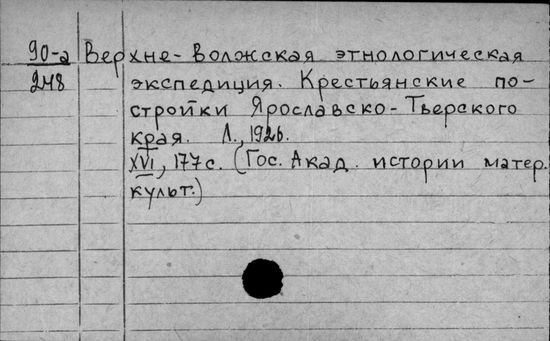 90-а Верхне-Волжская этнологическая
248 экспедиция. Крестьянские по-
стройки Ярославско-Тверского
края. Л., 1926.
XVI, 177 с. (Гос. Акад. истории матер.
культ.)